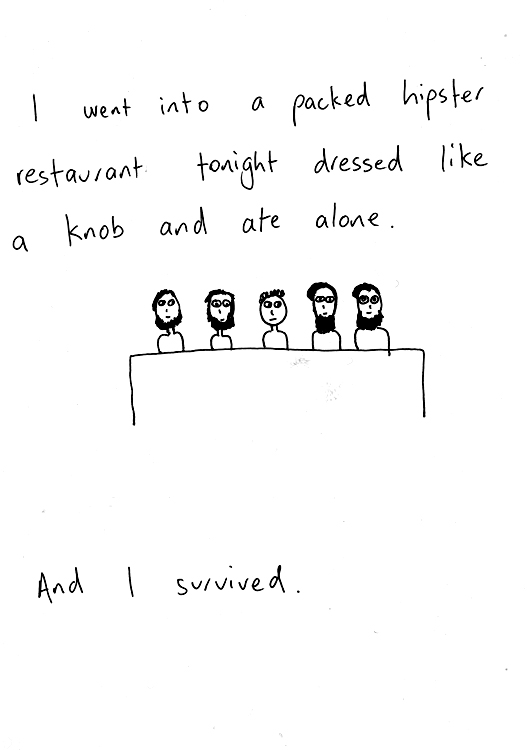 I went into a packed hipster
restaurant tonight dressed like
a knob and ate alone.
And I survived.